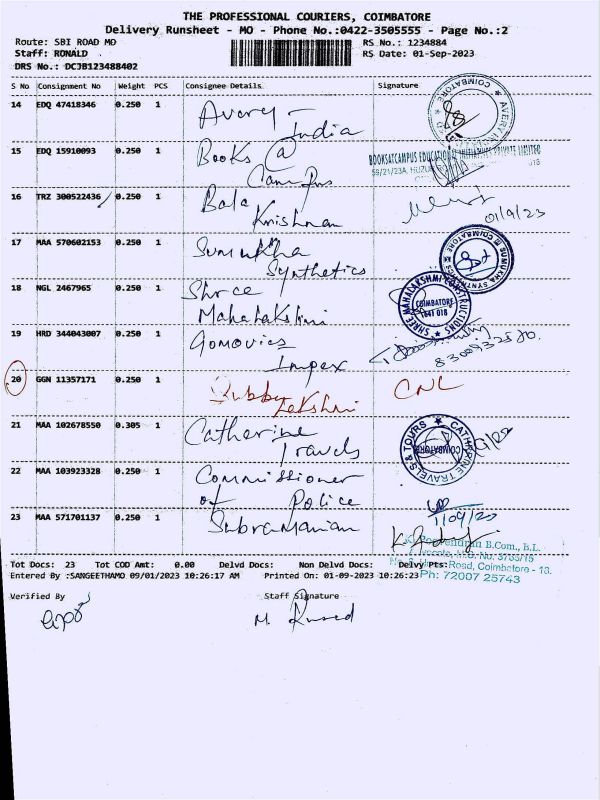 THE PROFESSIONAL COURIERS, COIMBATORE
Delivery Runsheet - MO - Phone No.:0422-3505555 - Page No.:2
Route: SBI ROAD MO RS No.: 1234884
Staff: RONALD RS Date: 01-Sep-2023
DRS No.: DCJB123488402
S No Consignment No Weight PCS Consignee Details Signature
14 EDQ 47418346 0.250 1 Avery - India
15 EDQ 15910093 0.250 1 Books @ Campus
BOOKSATCAMPUS EDUCATIONAL INITIATIVES PRIVATE LIMITED
16 TRZ 300522436 0.250 1 Bala Krishnan
01/9/23
17 MAA 570602153 0.250 1 Sumukha Synthetics
SUMUKHA SYNTHETICS COIMBATORE
18 NGL 2467965 0.250 1 Shree Mahalakshmi
SHREE MAHALAKSHMI CONSTRUCTIONS COIMBATORE 641 018
19 HRD 344043007 0.250 1 Gomovies Impex
20 GGN 11357171 0.250 1 Subbu Lekshmi CNL
21 MAA 102678550 0.305 1 Catherine Travels
CATHERINE TRAVELS & TOURS COIMBATORE
22 MAA 103923328 0.250 1 Commissioner of Police
23 MAA 571701137 0.250 1 Subramanian
B.Com., B.L.
Road, Coimbatore - 18.
Ph: 72007 25743
Tot Docs: 23 Tot COD Amt: 0.00 Delvd Docs: Non Delvd Docs: Delvy Pts:
Entered By :SANGEETHAMO 09/01/2023 10:26:17 AM Printed On: 01-09-2023 10:26:23
Verified By Staff Signature